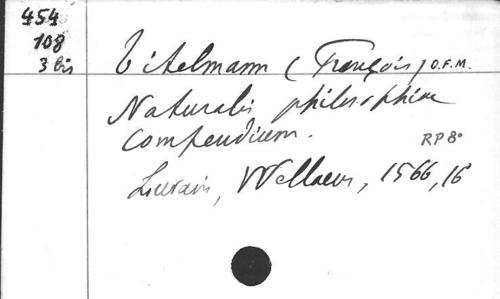 454
108
3 bis
Titelmann (François) O.F.M.
Naturalis philosophiae
Compendium.
RP 8°
Louvain, Wellaeus, 1566, 16°